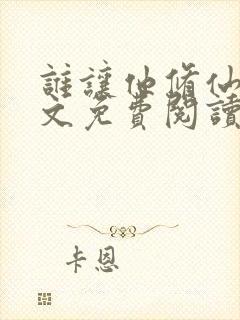 誰讓他修仙
文免費閱讀
卡恩